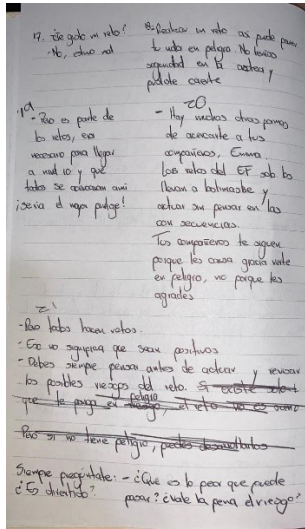 17. ¿Se grabó mi reto?
- No,
18. Realizar un reto así puede poner
tu vida en peligro. No tenías
seguridad en la azotea y
pudiste caerte
19
- Pero es parte de
los retos, era
necesario para llegar
a nivel 10 y que
todos se acercaran a mi
¡sería el mejor puntaje!
20
- Hay muchas otras formas
de acercarte a tus
compañeros, Emma.
Los retos del EF solo los
llevan a bolinarbe y
actuar sin pensar en las
con secuencias.
Tus compañeros te siguen
porque les causa gracia verte
en peligro, no porque les
agrades
21
- Pero todos hacen retos.
- Eso no significa que sean positivos
- Debes siempre pensar antes de actuar y revisar
los posibles riesgos del reto. Si existe
que te ponga en riesgo, peligro, el reto no es sano
Pero si no tiene peligro, puedes desarrollarlos
Siempre pregúntate: - ¿Qué es lo peor que puede
pasar? ¿vale la pena el riesgo?
¿Es divertido?